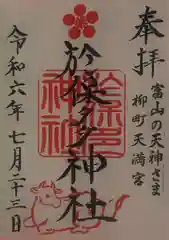 奉拝
富山の天神さま
柳町天満宮
於保多神社
令和六年七月二十三日